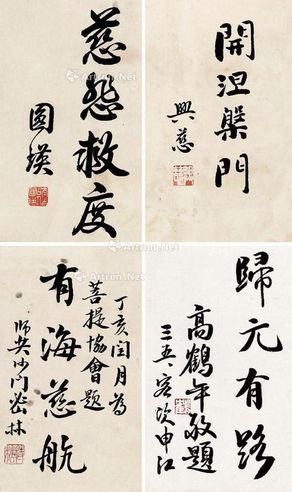 慈愍救度
圓瑛
開涅槃門
興慈
丁亥閏月為
菩提協會題
有海慈航
師奘沙門密林
歸元有路
高鶴年敬題
三五客次申江
Artron.Net
Artron.Net
Artron.Net
Artron.Net